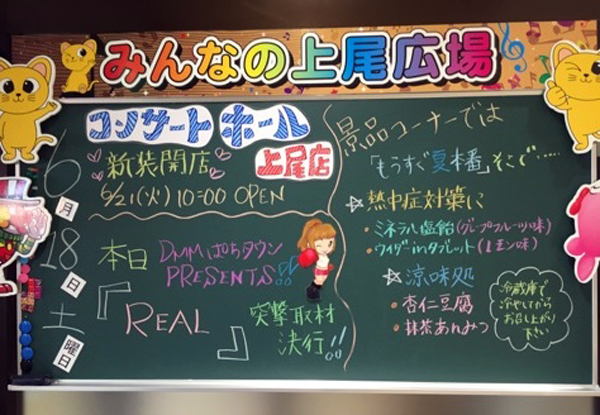 みんなの上尾広場
6月
18日
土曜日
コンサートホール
上尾店
新装開店
6/21(火) 10:00 OPEN
本日 DMMぱちタウン
PRESENTS!!
『REAL』
突撃取材
決行!!
景品コーナーでは
「もうすぐ夏本番」そこで……
☆熱中症対策に
・ミネラル塩飴(グレープフルーツ味)
・ウイダーinタブレット(レモン味)
☆涼味処
・杏仁豆腐
・抹茶あんみつ
冷蔵庫で
冷やしてから
お召し上がり
下さい